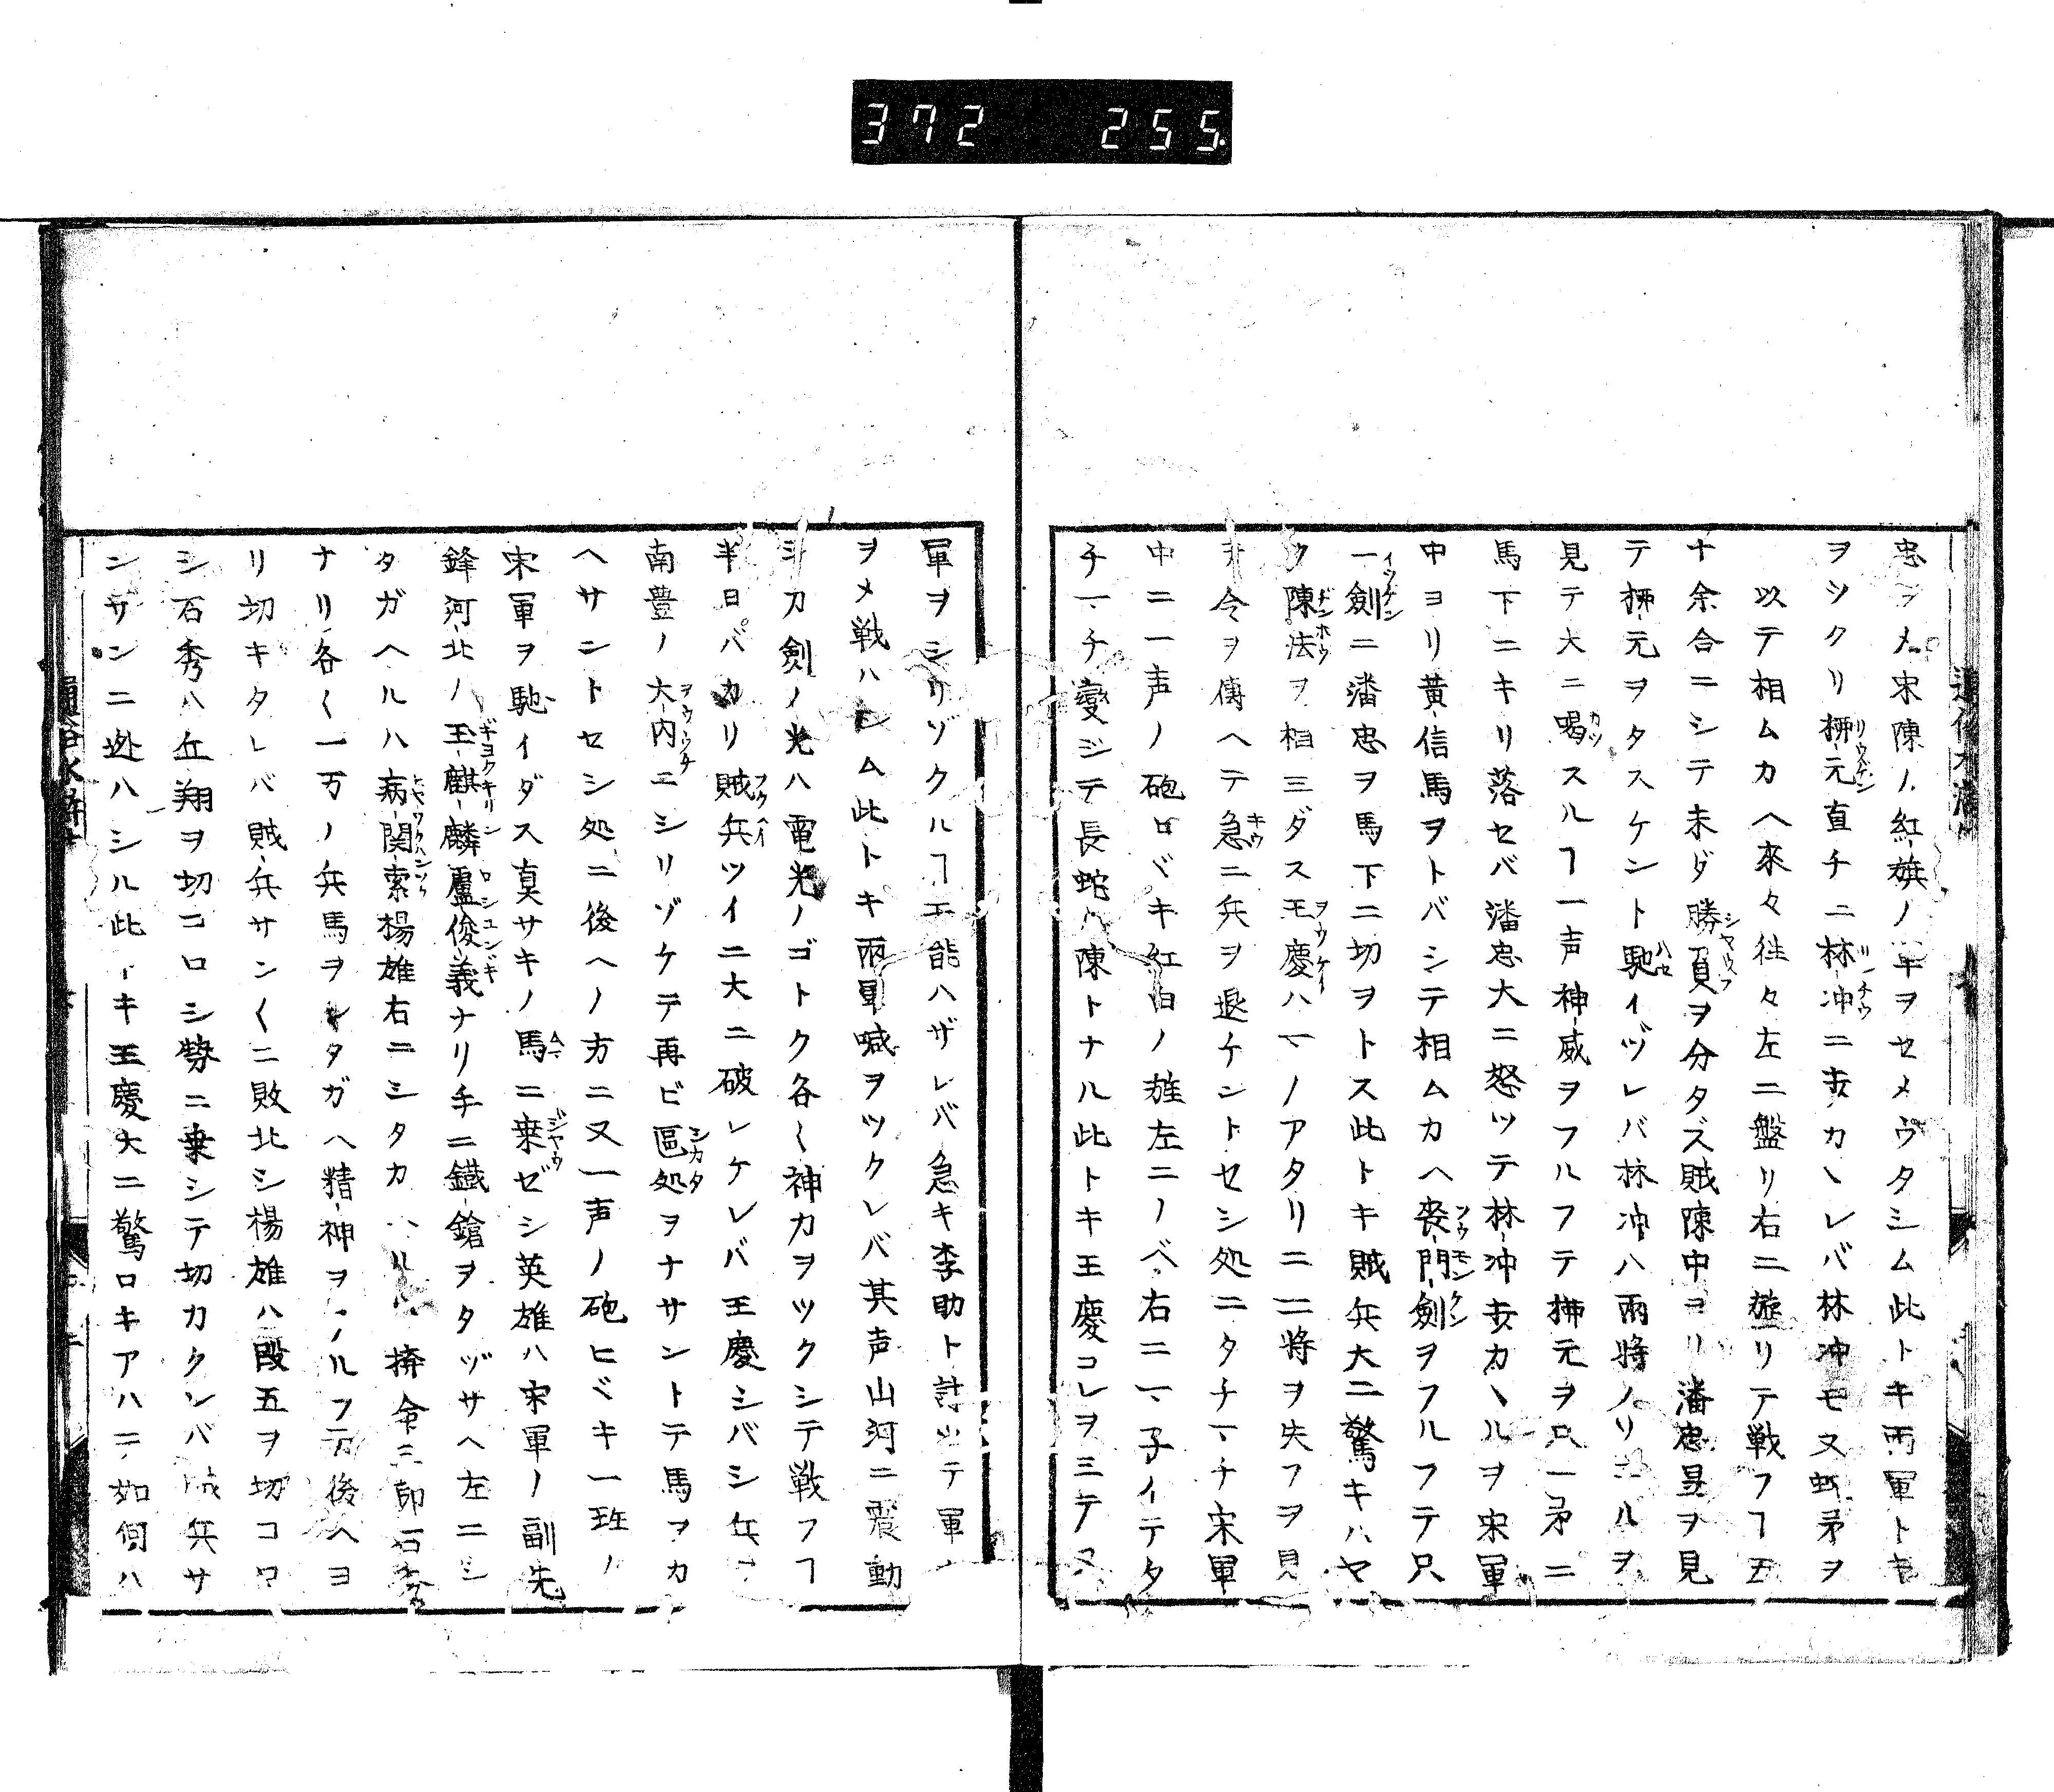 372 255
忠ヲメ宋陳ノ紅旗ノ軍ヲセメウタシム此トキ両軍トキ
ヲツクリ柳元直チニ林冲ニ志カヽレバ林冲モ又蛇矛ヲ
以テ相ムカヘ來々往々左ニ盤リ右ニ旋リテ戦フヿ五
十余合ニシテ未ダ勝負ヲ分タズ賊陳中ヨリ潘忠是ヲ見
テ柳元ヲタスケント馳イヅレバ林冲ハ両將ノリ出ルヲ
見テ大ニ喝スルヿ一声神威ヲフルフテ柳元ヲ只一矛ニ
馬下ニキリ落セバ潘忠大ニ怒ツテ林冲ニカヽルヲ宋軍
中ヨリ黄信馬ヲトバシテ相ムカヘ喪門劍ヲフルフテ只
一劍ニ潘忠ヲ馬下ニ切ヲトス此トキ賊兵大ニ驚キハヤ
ク陳法ヲ相ミダス王慶ハ一ノアタリニ二將ヲ失フヲ見
テ令ヲ傳ヘテ急ニ兵ヲ退ケントセシ処ニタチマチ宋軍
中ニ一声ノ砲ロビキ紅白ノ旌左ニノベ右ニマ子イテタ
チマチ變ジテ長蛇ノ陳トナル此トキ王慶コレヲミテ又
軍ヲシリゾクルヿエ能ハザレバ急キ李助ト計ツテ軍
ヲメ戦ハシム此トキ両軍喊ヲツクレバ其声山河ニ震動
シ刀劍ノ光ハ電光ノゴトク各〱神力ヲツクシテ戦フヿ
半日バカリ賊兵ツイニ大ニ破レケレバ王慶シバシ兵ヲ
南豊ノ大内ニシリゾケテ再ビ區処ヲナサントテ馬ヲカ
ヘサントセシ処ニ後ヘノ方ニ又一声ノ砲ヒビキ一班ノ
宋軍ヲ馳イダス真サキノ馬ニ乗ゼシ英雄ハ宋軍ノ副先
鋒河北ノ玉麒麟盧俊義ナリ手ニ鐵鎗ヲタヅサヘ左ニシ
タガヘルハ病関索楊雄右ニシタカヘルハ拚命三郎石秀
ナリ各〱一万ノ兵馬ヲシタガヘ精神ヲフルフテ後ヘヨ
リ切キタレバ賊兵サン〱ニ敗北シ楊雄ハ段五ヲ切コロ
シ石秀ハ丘翔ヲ切コロシ勢ニ乗シテ切カクレバ賊兵サ
ンサンニ迯ハシル此トキ王慶大ニ驚ロキアハテ如何ハ